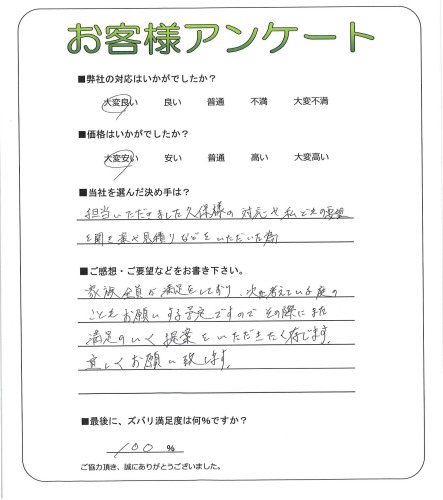 お客様アンケート
■弊社の対応はいかがでしたか?
大変良い 良い 普通 不満 大変不満
■価格はいかがでしたか?
大変安い 安い 普通 高い 大変高い
■当社を選んだ決め手は?
担当いただきました久保様の対応や私どもの要望
を聞き 見積りなどをいただいた為
■ご感想・ご要望などをお書き下さい。
家族全員が満足をしており、次に考えている庭の
こともお願いする予定ですのでその際にまた
満足のいく提案をいただきたく存じます。
宜しくお願い致します。
■最後に、ズバリ満足度は何%ですか?
100 %
ご協力頂き、誠にありがとうございました。